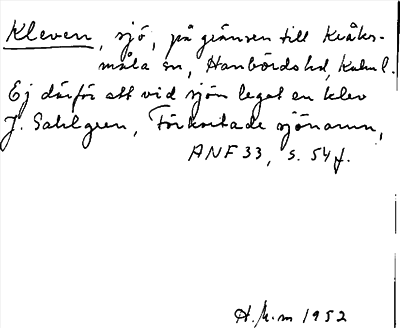 Kleven, sjö, på gränsen till Kråks-
måla sn, Hanbördshd, Kalml.
Ej därför att vid sjön legat en klev
J. Sahlgren, Förkortade sjönamn,
ANF 33, s. 54 f.
1952